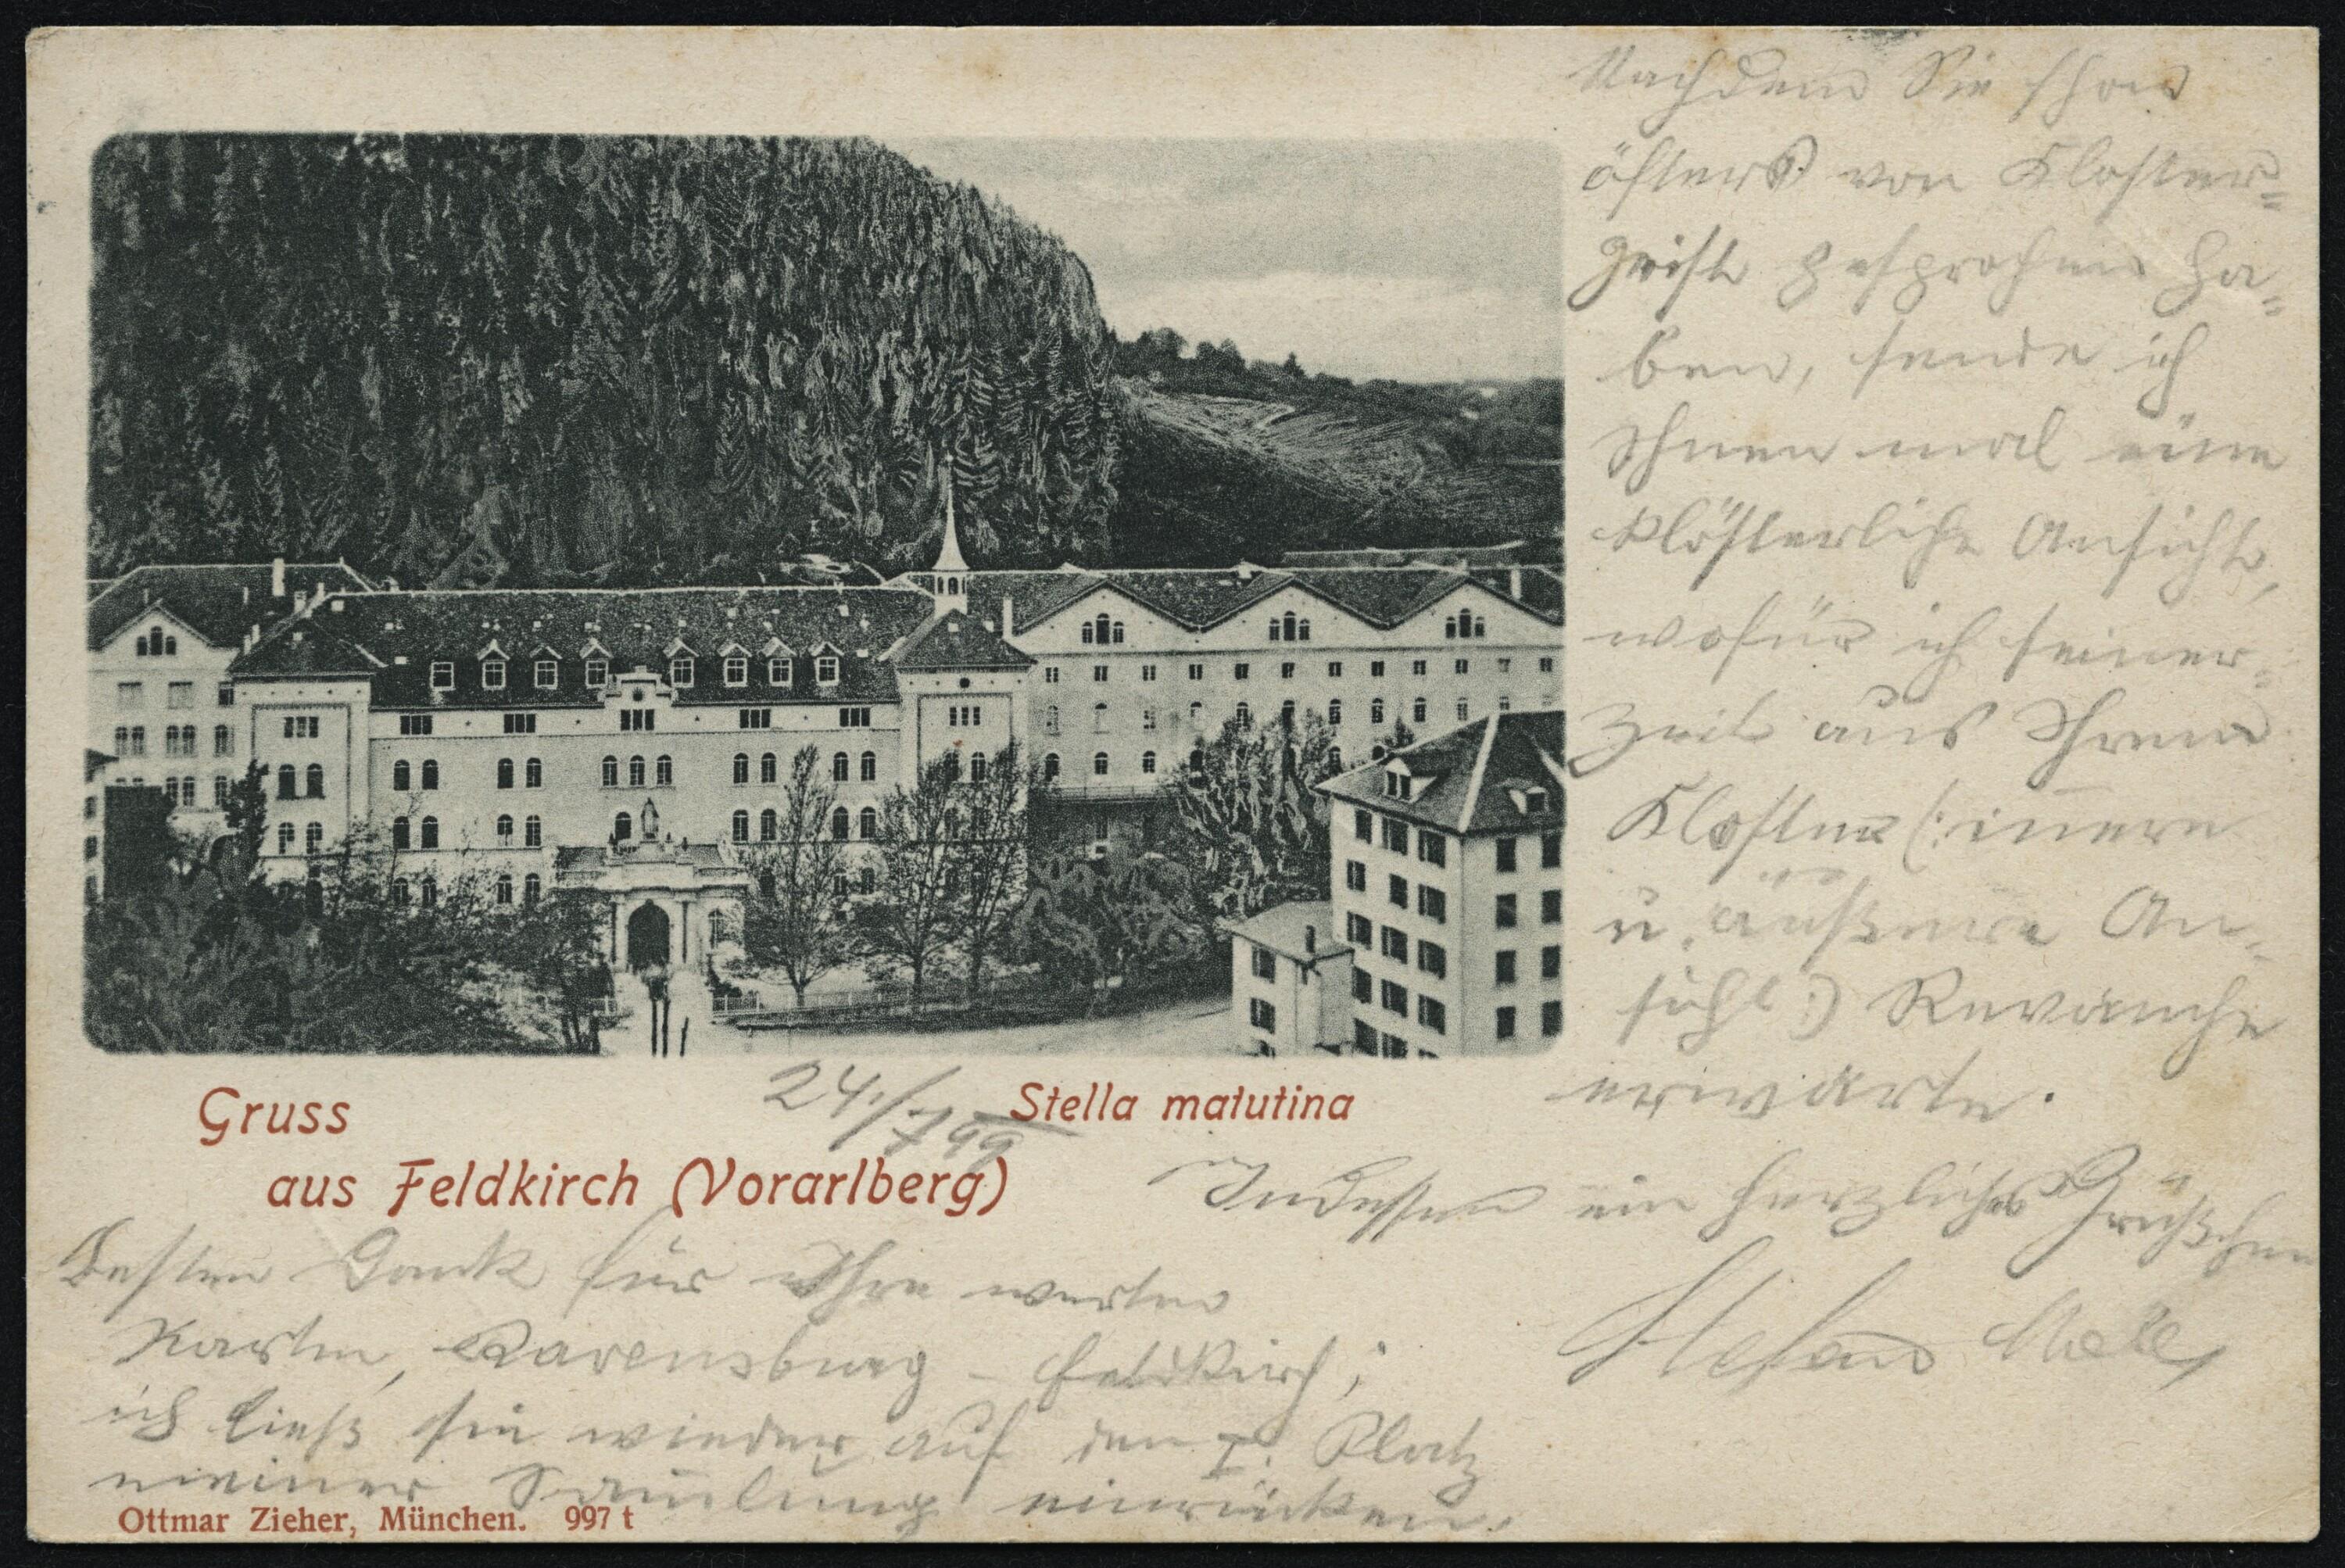 Nachdem Sie schon
öfters von Kloster=
geiste gesprochen ha=
ben, sende ich
Ihnen mal eine
klösterliche Ansicht,
wofür ich seiner=
zeit aus Ihrem
Kloster (: innere
u. äußere An=
sicht :) Revanche
erwarte.
24./7 99
Gruss
Stella matutina
aus Feldkirch (Vorarlberg)
Indessen ein herzliches Grüßchen
Stefan
Besten Dank für Ihre werten
Karten, Ravensburg - Feldkirch;
ich ließ sie wieder auf den I. Platz
meiner Samlung einrücken.
Ottmar Zieher, München. 997 t